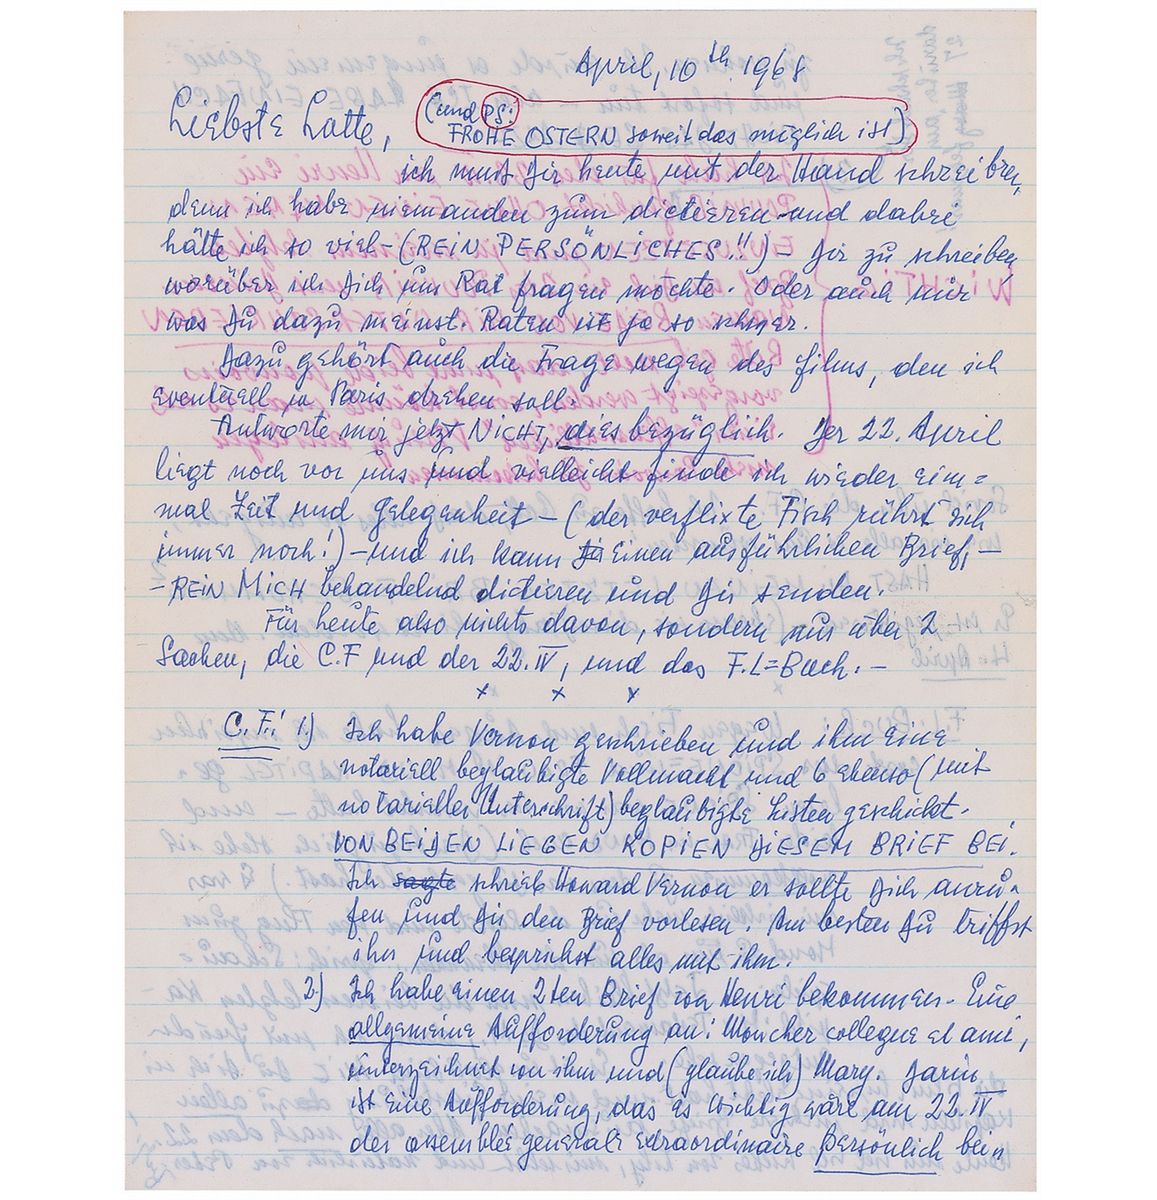 April, 10th. 1968
Liebste Lotte,
(und PS:
FROHE OSTERN soweit das möglich ist)
ich muss Dir heute mit der Hand schreiben,
denn ich habe niemanden zum dictieren und dabei
hätte ich so viel – (REIN PERSÖNLICHES!!) – Dir zu schreiben
worüber ich Dich um Rat fragen möchte. Oder auch nur
was Du dazu meinst. Raten ist ja so schwer.
Dazu gehört auch die Frage wegen des films, den ich
eventuell in Paris drehen soll.
Antworte mir jetzt NICHT, diesbezüglich. Der 22. April
liegt noch vor uns und vielleicht finde ich wieder ein=
mal Zeit und Gelegenheit – (der verflixte Fisch rührt sich
immer noch!) – und ich kann Dir einen ausführlichen Brief –
– REIN MICH behandelnd dictieren und Dir senden.
Für heute also nichts davon, sondern nur über 2
Sachen, die C.F und der 22. IV, und das F.L=Buch. –
x x x
C.F.: 1.) Ich habe Vernon geschrieben und ihm eine
notariell beglaubigte Vollmacht und 6 ebenso (mit
notarieller Unterschrift) beglaubigte Listen geschickt.
VON BEIDEN LIEGEN KOPIEN DIESEM BRIEF BEI.
Ich sagte schrieb Howard Vernon er sollte Dich anru=
fen und Dir den Brief vorlesen. Am besten Du triffst
ihn und besprichst alles mit ihm.
2.) Ich habe einen 2ten Brief von Henri bekommen. Eine
allgemeine Aufforderung an: Moncher collegue et ami,
unterzeichnet von ihm und (glaube ich) Mary. Darin
ist eine Aufforderung, das es wichtig wäre am 22. IV
der assemblée generale extraordinaire persönlich bei=